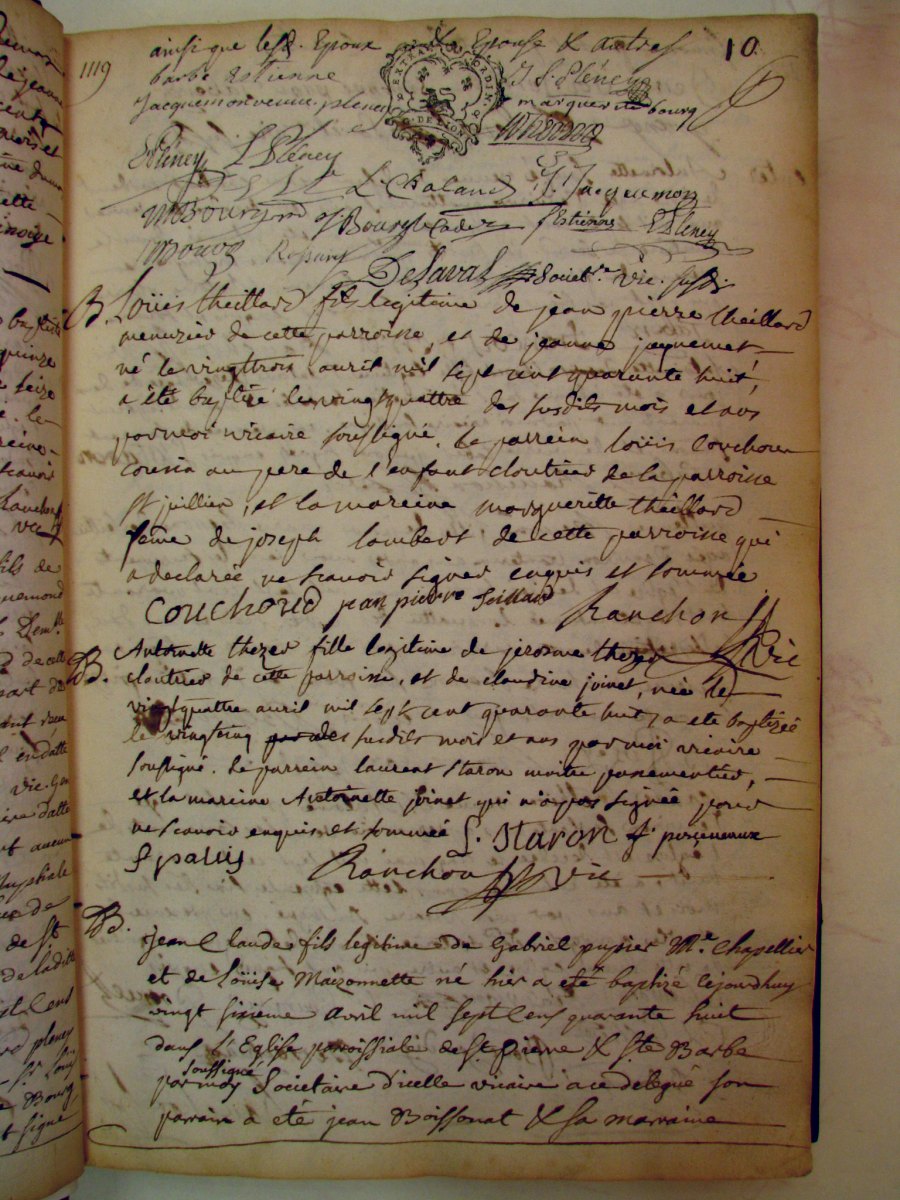 1119
10
ainsi que les Sr. Epoux & Epouse & autres
barbe estienne J S. Pléney
Jacquemon veuve pleney marguerite bourg
EXTRAORDIN
G. DE LION
Pleney L Pleney
L Chaland J. Jacquemon
MBourg J. Bourg Cadet f Estienne Pleney
Delaval Societre. Vic. susdi
B. Loüis theillard fils legitime de jean pierre theillard
menuzier de cette parroisse, et de jeanne jaquemet
né le vingttrois auril mil sept cent quarante huit,
a été baptisé le vingtquattre des susdits mois et ans
par moi vicaire soussigné. le parrein loüis Couchoud
cousin au pere de l'enfant cloutier de la parroisse
st jullien, et la mareine margueritte theillard
feme de joseph lambert de cette parroisse qui
a declarée ne scavoir signer enquis et sommée
COUCHOUD jean pierre teillard Ranchon
Vic
B. Antoinette thezer fille legitime de jerosme thezer
cloutier de cette parroisse, et de claudine joinet, née le
vingtquattre auril mil sept cent quarante huit, a été baptizée
le vingtcinq des susdits mois et ans par moi vicaire
soussigné. le parrein laurent staron maitre passementier,
et la mareine Antoinette joinet qui n'a pas signée pour
ne scavoir enquis et sommée L. Staron
Ranchon Vic
B.
Jean Claude fils legitime de Gabriel pupier Me. Chapellier
et de Loüise Maizonnette né hier a été baptizé cejourdhuy
vingt sixiéme avril mil sept Cens quarante huit
dans l'Eglise paroissiale de St. Pierre & Ste Barbe
par moy soussigné Societaire d'icelle vicaire a ce delegué son
parrain a eté jean Boissonat & sa marraine